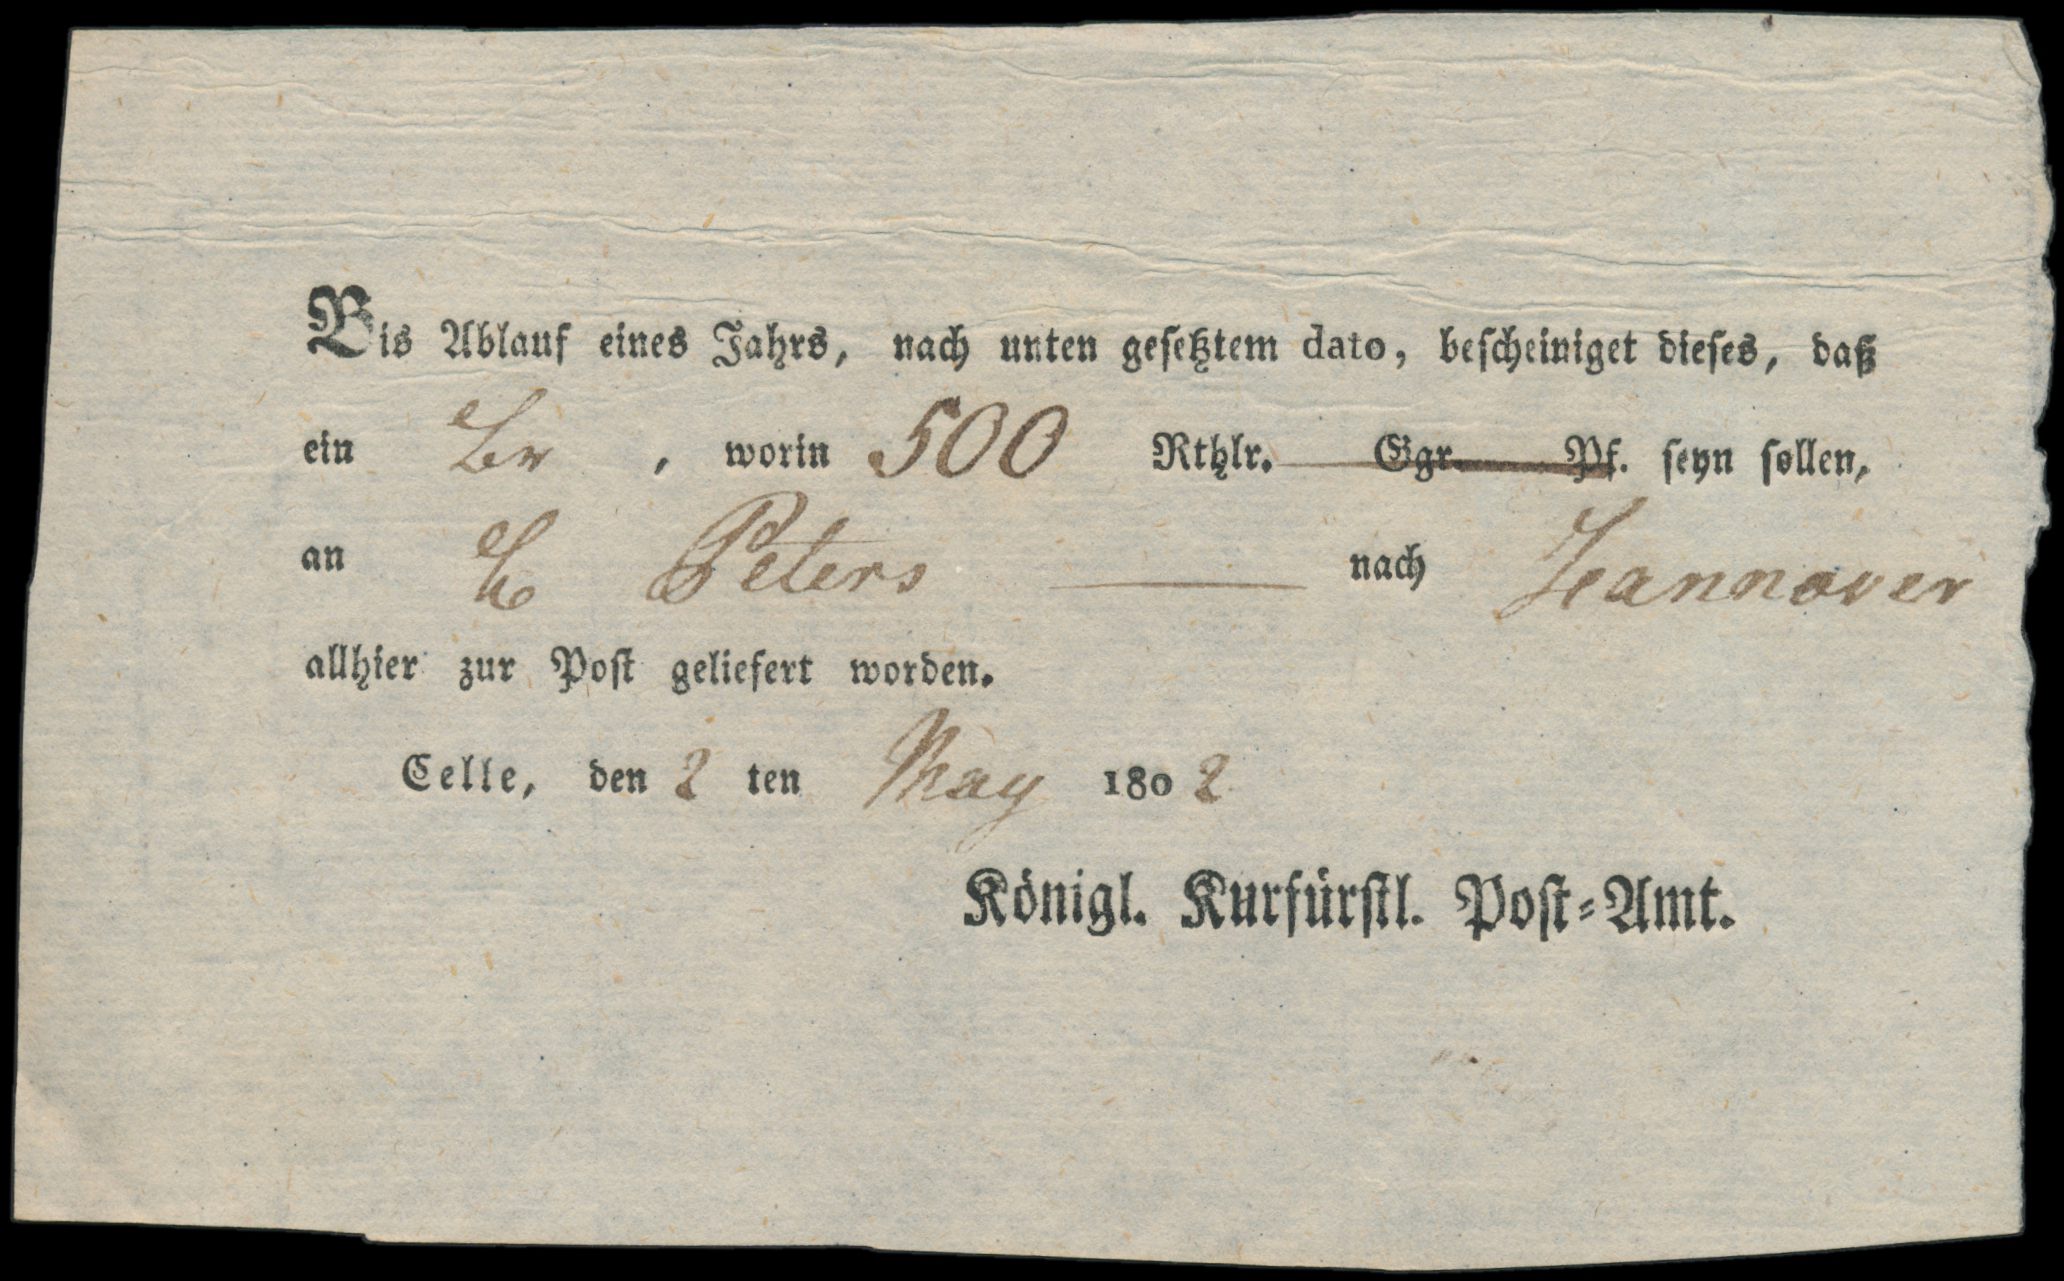 Bis Ablauf eines Jahrs, nach unten gesetztem dato, bescheiniget dieses, daß
ein Br , worin 500 Rthlr. Ggr. Pf. seyn sollen,
an Peters nach Hannover
allhier zur Post geliefert worden.
Celle, den 2 ten May 1802
Königl. Kurfürstl. Post-Amt.